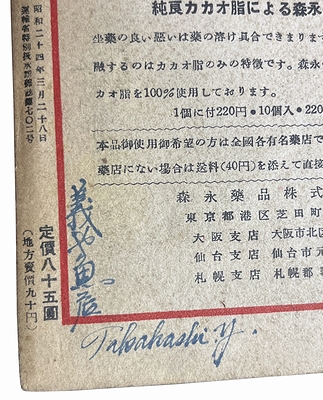 純良カカオ脂による森永
坐藥の良い悪いは藥の溶け具合できまります
融するのはカカオ脂のみの特徴です。森永
カオ脂を100%使用しております。
1個に付220円•10個入•220
本品御使用御希望の方は全國各有名藥店で
藥店にない場合は送料(40円)を添えて直接
森永藥品株式
東京都港区芝田町
大阪支店 大阪市北区
仙台支店 仙台市元
札幌支店 札幌郡
昭和二十四年三月二十八日
定價八十五圓
(地方賣價九十円)
Takahashi y.